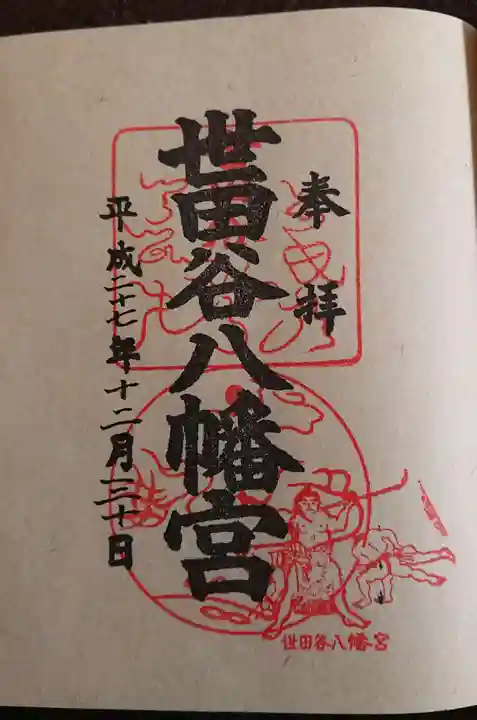 奉拝
世田谷八幡宮
平成二十七年十二月三十日
世田谷八幡宮